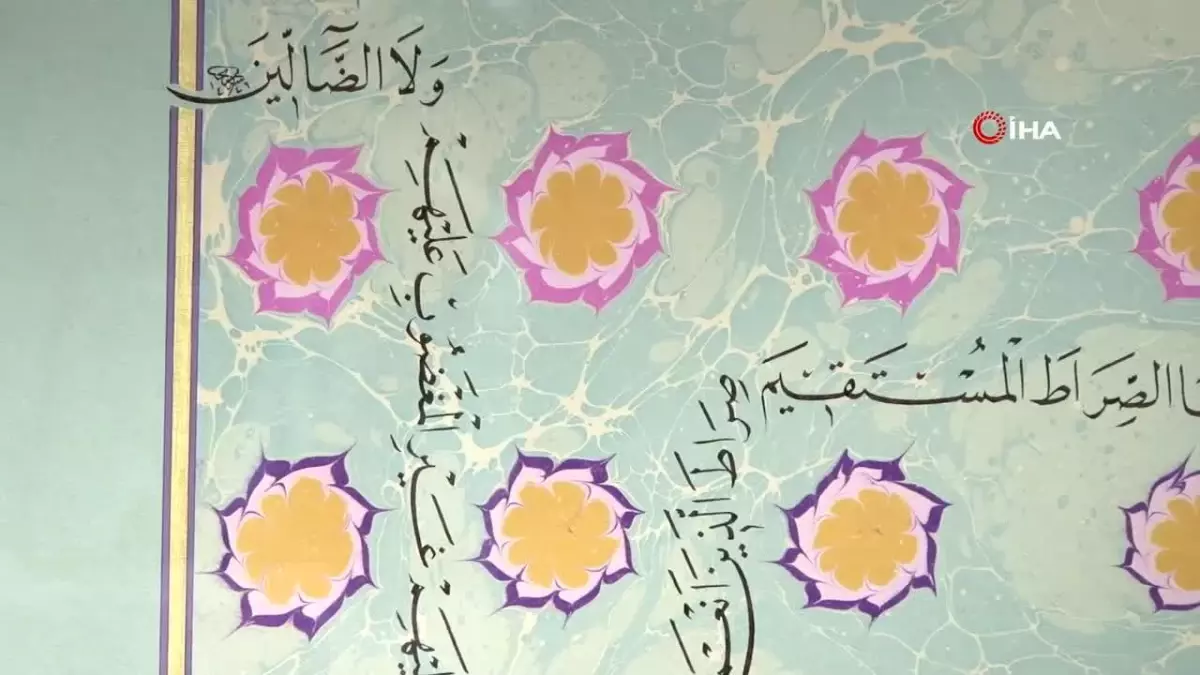 الصِّرَاطَ الْمُسْتَقِيمَ
صِرَاطَ الَّذِينَ اَنْعَمْتَ
غَيْرِ الْمَغْضُوبِ عَلَيْهِمْ
وَلَا الضَّآلِّينَ
İHA